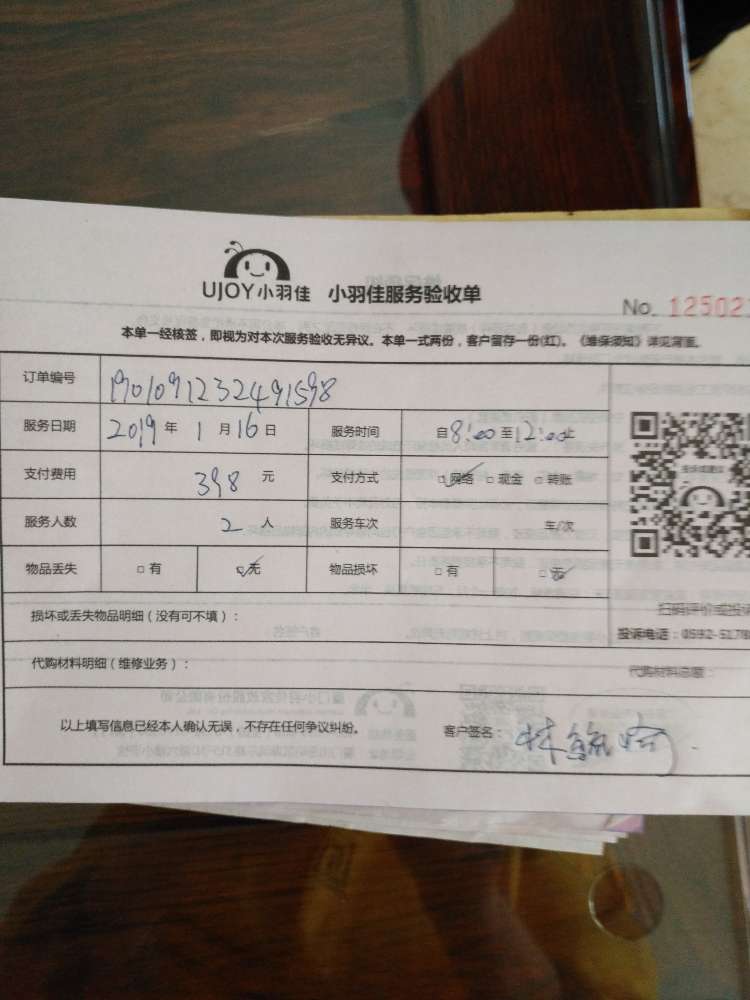 UJOY小羽佳 小羽佳服务验收单
No. 12502
本单一经核签，即视为对本次服务验收无异议。本单一式两份，客户留存一份(红)。《维保须知》详见背面。
订单编号 1901091232491598
服务日期 2019 年 1 月 16 日 服务时间 自 8:00 至 12:00 止
支付费用 398 元 支付方式 □ 网络 □ 现金 □ 转账
服务人数 2 人 服务车次 车/次
物品丢失 □ 有 □ 无 物品损坏 □ 有 □ 无
扫码评价或投诉
损坏或丢失物品明细（没有可不填）：
投诉电话：0592-5178
代购材料明细（维修业务）： 代购材料总额：
以上填写信息已经本人确认无误，不存在任何争议纠纷。 客户签名：